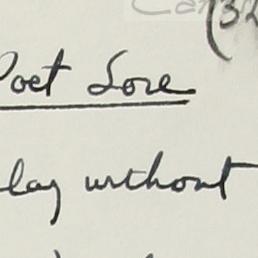 Poet Lore
lay without